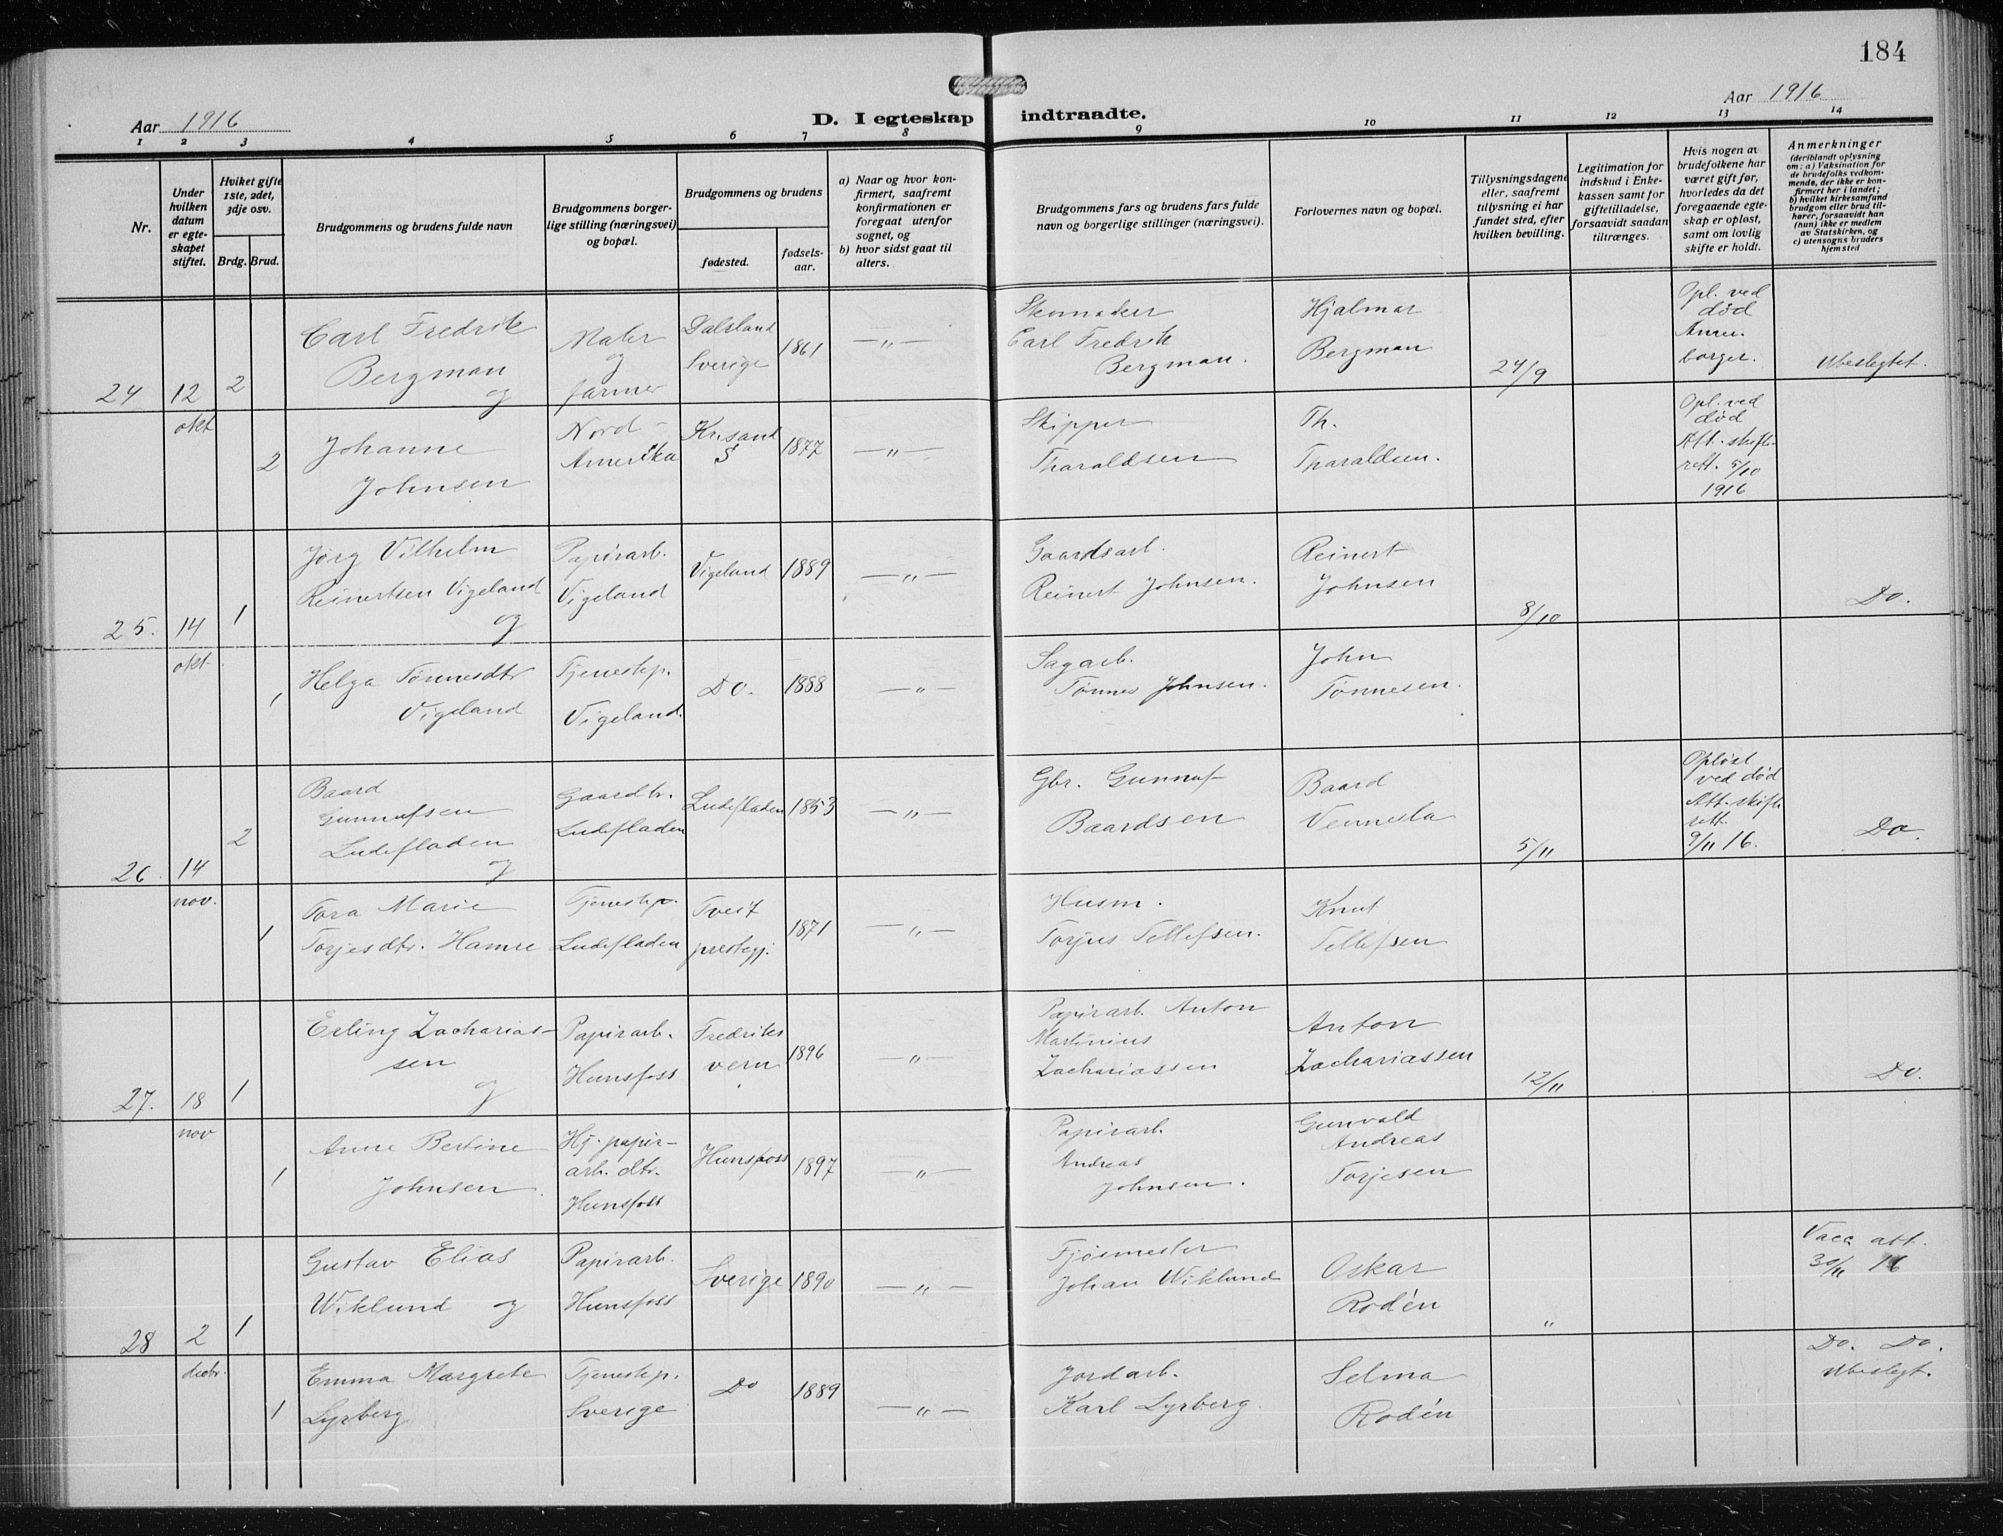 184
Aar 1916
Aar 1916
D. I egteskap indtraadte.
1 2 3 4 5 6 7 8 9 10 11 12 13 14
Nr.
Under hvilken datum er egteskapet stiftet.
Hvilket gifte 1ste, 2det, 3dje osv.
Brdg. Brud.
Brudgommens og brudens fulde navn
Brudgommens borgerlige stilling (næringsvei) og bopæl.
Brudgommens og brudens
fødested.
fødselsaar.
a) Naar og hvor konfirmert, saafremt konfirmationen er foregaat utenfor sognet, og
b) hvor sidst gaat til alters.
Brudgommens fars og brudens fars fulde navn og borgerlige stillinger (næringsvei).
Forlovernes navn og bopæl.
Tillysningsdagene eller, saafremt tillysning ei har fundet sted, efter hvilken bevilling.
Legitimation for indskud i Enkekassen samt for giftetilladelse, forsaavidt saadan tiltrænges.
Hvis nogen av brudefolkene har været gift før, hvorledes da det foregaaende egteskap er opløst, samt om lovlig skifte er holdt.
Anmerkninger
(deriblandt oplysning om: a) Vaksination for de brudefolks vedkommende, der ikke er konfirmert her i landet; b) hvilket kirkesamfund brudgom eller brud tilhører, forsaavidt han (hun) ikke er medlem av Statskirken, og c) utensogns bruders hjemsted
24 12 okt 2 Carl Fredrik Bergman og
Maler og farmer
Dalsland Sverige 1861 — „ —
Skomaker Carl Fredrik Bergman.
Hjalmar Bergman
24/9
Opl. ved død
borger.
Ubeslegtet.
2 Johanne Johnsen
Nord-Amerika
Krisand S 1877 — „ —
Skipper Tharaldsen
Th. Tharaldsen.
Opl. ved død Att. skifteret. 5/10 1916
25. 14 okt 1 Jørg Vilhelm Reinertsen Vigeland og
Papirarb. Vigeland
Vigeland 1889 — „ —
Gaardsarb. Reinert Johnsen.
Reinert Johnsen
8/10
Do.
1 Helga Tønnesdtr Vigeland
Tjenestep. Vigeland.
Do. 1888 — „ —
Sagarb. Tønnes Johnsen.
John Tønnesen.
26. 14 nov. 2 Baard Gunnufsen Ludefladen og
Gaardbr. Ludefladen
Ludefladen 1853 — „ —
Gbr. Gunnuf Baardsen
Baard Vennesla
5/11
Opløst ved død Att. skifterett. 9/11 16.
Do.
1 Tora Marie Torjesdtr. Hamre
Tjenestep. Ludefladen
Tveit prestegj. 1871 — „ —
Husm. Torjus Tellefsen.
Knut Tellefsen
27. 18 nov 1 Erling Zachariassen og
Papirarb. Hunsfoss
Fredriksvern 1896 — „ —
Papirarb. Anton Martinius Zachariassen
Anton Zachariassen
12/11
Do.
1 Anne Bertine Johnsen.
Hj. papirarb. dtr. Hunsfoss
Hunsfoss 1897 — „ —
Papirarb. Andreas Johnsen.
Gunvald Andreas Torjesen
28 2 decbr. 1 Gustav Elias Wiklund og
Papirarb. Hunsfoss
Sverige 1890 — „ —
Fjøsmester Johan Wiklund
Oskar Rodén
„
Vacc. att. 30/11 16
1 Emma Margrete Lyrberg
Tjenestep. Sverige
Do 1889 — „ —
Jordarb. Karl Lyrberg.
Selma Rodén
Do. Do. Ubeslegt.